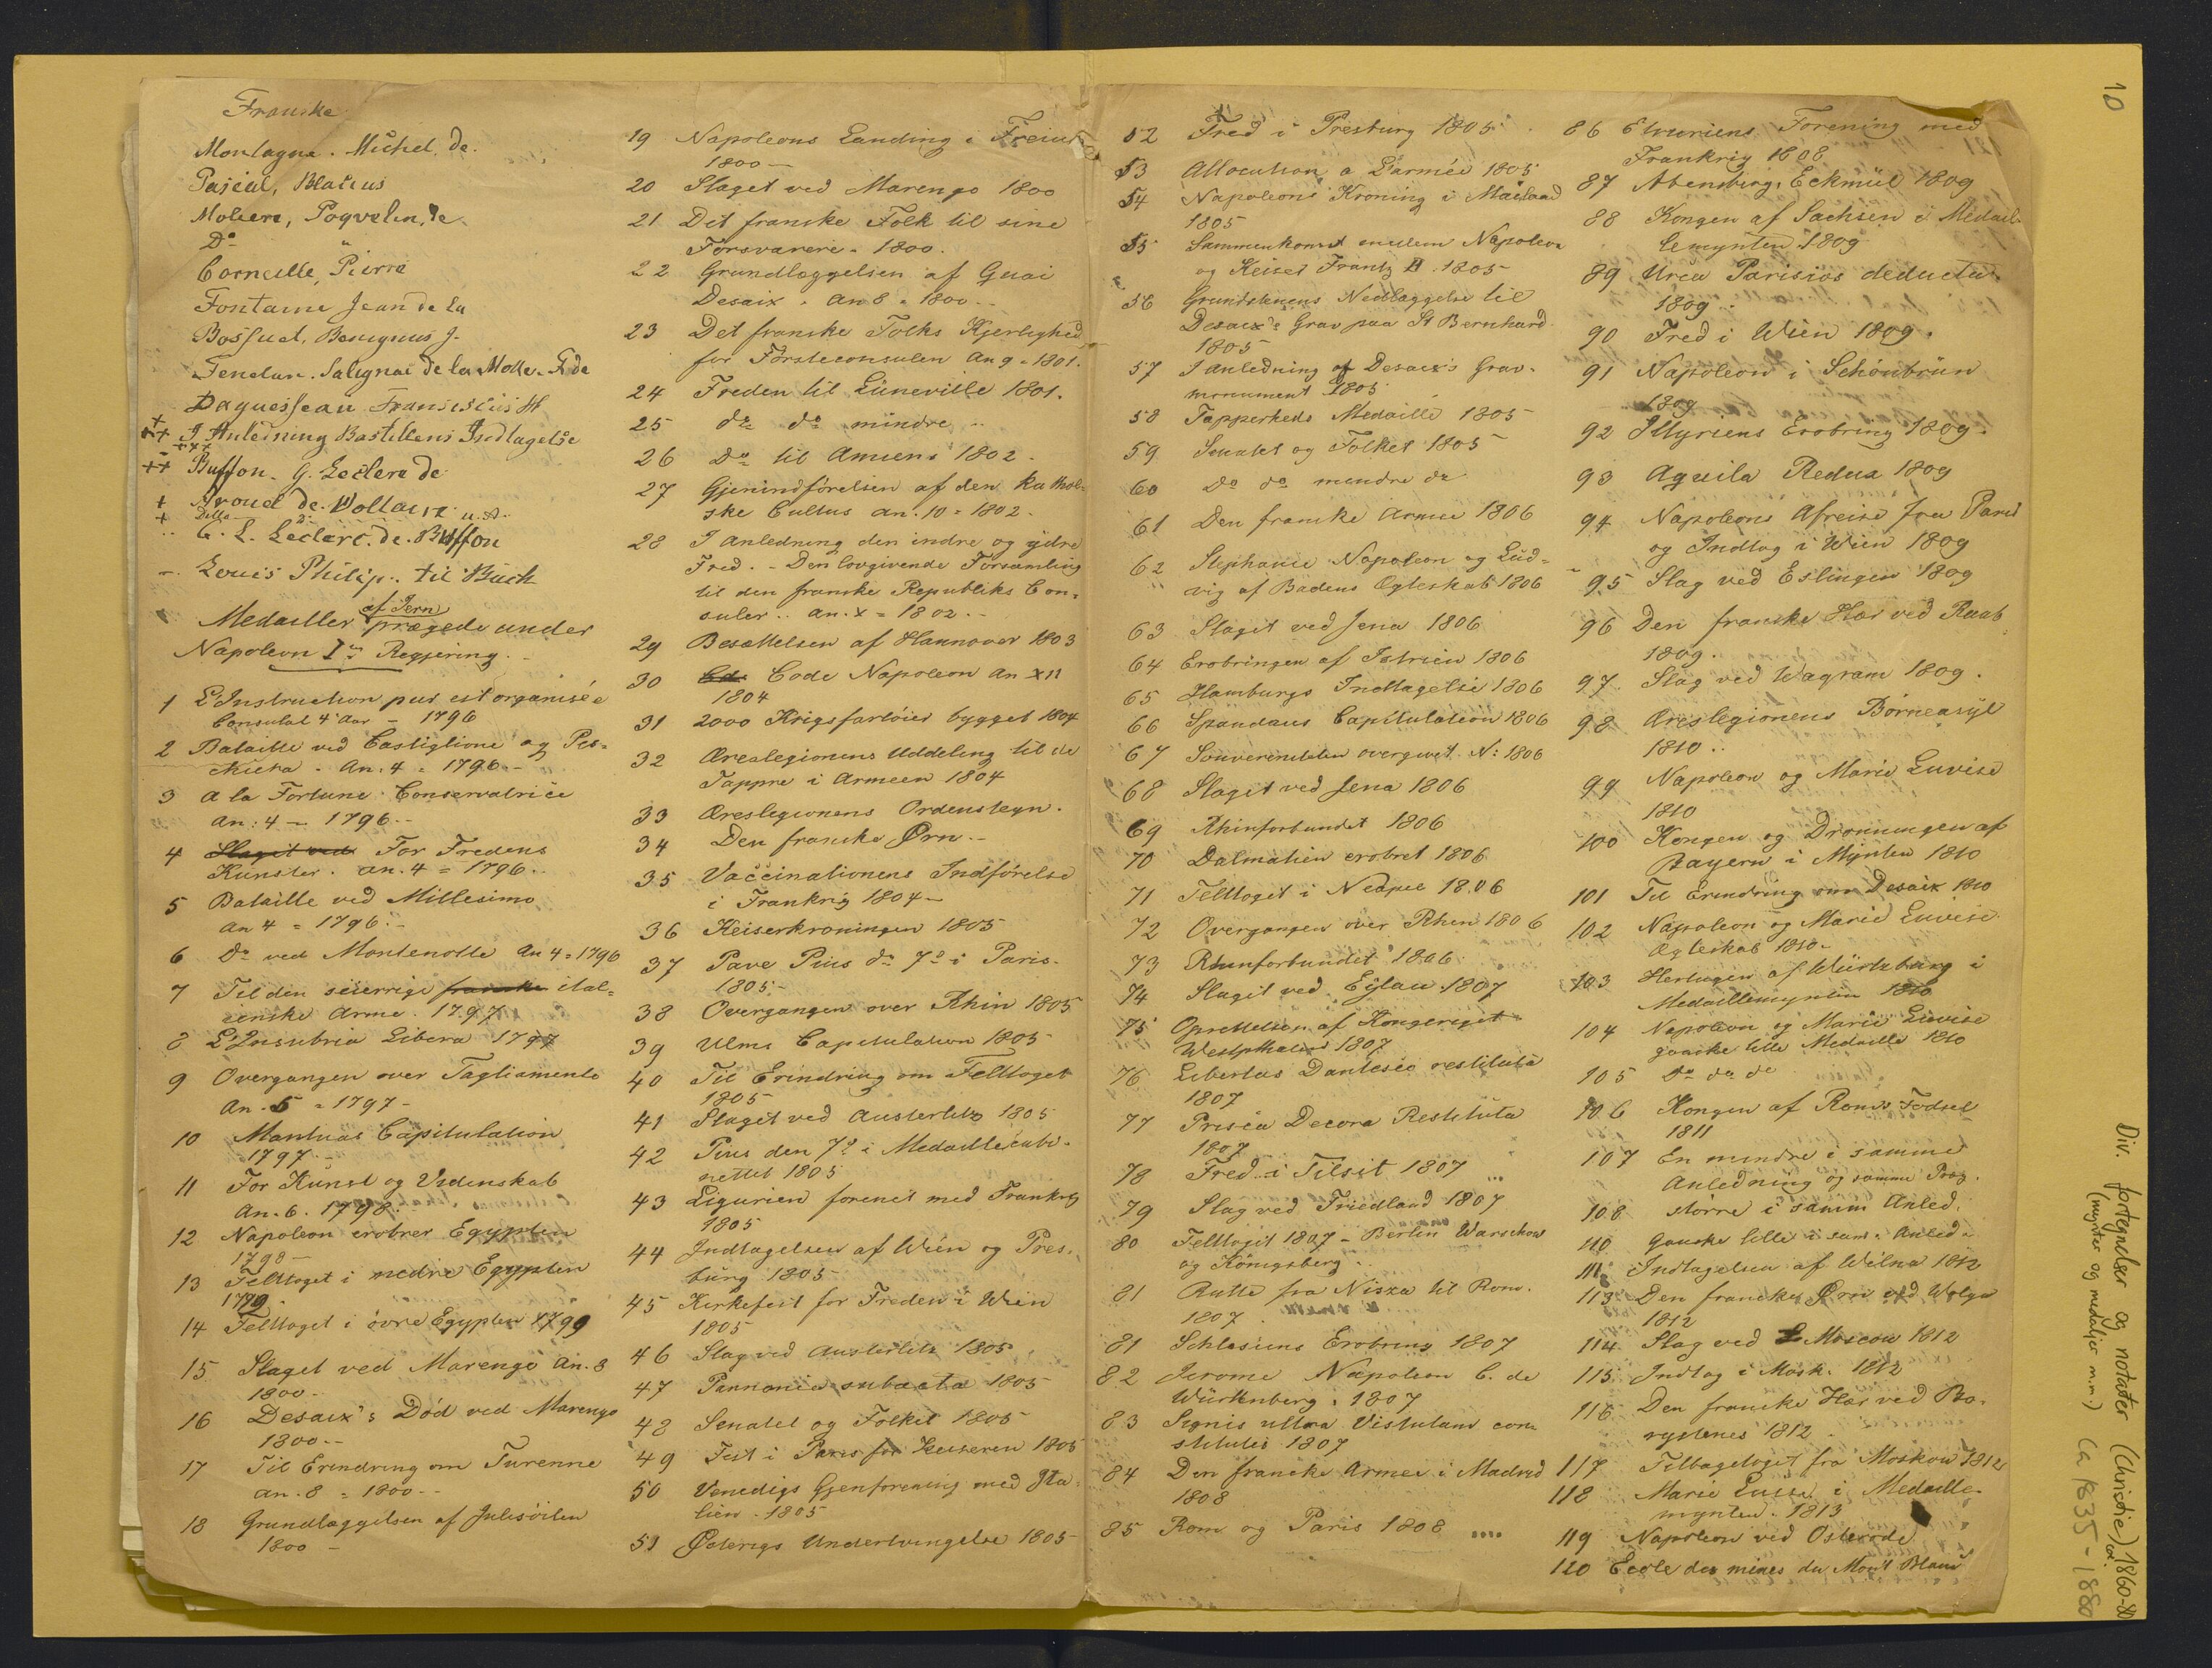 Franske
Montagne. Michel, de.
Pascal, Blasius
Moliere, Poqvelin, de
Do "
Corneille, Pierre
Fontaine Jean de la
Bossuet, Benignus J.
Fenelon. Salignac de la Motte. F. de
Daquesseau Fransiscus H
I Anledning Bastillens Indtagelse
Buffon. G. Leclerc de
Arouet de. Voltaire
Ditto Do u. A.
G. L. Leclerc. de. Buffon
Louis Philip. til Buch
Medailler af Jern prægede under
Napoleon Ie Regjering.
1 L'Instruction pub est organisée
Consulat 4 Aar - 1796
2 Bataille ved Castiglione og Pes-
chiera. An. 4 = 1796 -
3 a la Fortune Conservatrice
an: 4 - 1796 -
4 Slaget ved For Fredens
Kunster. an. 4 = 1796.
5 Bataille ved Millesimo
an 4 = 1796 -
6 Do ved Montenotte An 4 = 1796
7 Til den seierrige franske ital-
ienske Arme. 1797
8 L'Insubria Libera 1797
9 Overgangen over Tagliamento
An. 5 = 1797 -
10 Mantuas Capitulation
1797 -
11 For Kunst og Videnskab
An. 6. 1798.
12 Napoleon erobrer Egypten
1798 -
13 Felttoget i nedre Egypten
1799
14 Felttoget i övre Egypten 1799
15 Slaget ved Marengo An. 8
1800 -
16 Desaix's Död ved Marengo
1800 -
17 Til Erindring om Turenne
an. 8 = 1800 -
18 Grundlæggelsen af Julisöilen
1800 -
19 Napoleons Landing i
1800 -
20 Slaget ved Marengo 1800
21 Det franske Folk til sine
Forsvarere - 1800.
22 Grundlæggelsen af Quai
Desaix. An 8 = 1800 -
23 Det franske Folks Kjerlighed
for Förste consulen An 9 = 1801.
24 Freden til Lüneville 1801.
25 do do mindre
26 Do til Amiens 1802.
27 Gjenindförelsen af den Katol-
ske Cultus an. 10 = 1802.
28 I Anledning den indre og ydre
Fred. - Den lovgivende Forsamling
til den franske Republiks Con-
suler. an. X = 1802 -
29 Besættelsen af Hannover 1803
30 Code Napoleon An XII
1804
31 2000 Krigsfartöier bygget 1804
32 Æreslegionens Uddeling til de
Tappre i Armeen 1804
33 Æreslegionens Ordenstegn.
34 Den franske Ørn -
35 Vaccinationens Indförelse
i Frankrig 1804 -
36 Keiserkroningen 1805
37 Pave Pius d. 7o i Paris.
1805 -
38 Overgangen over Rhin 1805
39 Ulms Capitulation 1805
40 Til Erindring om Felttoget
1805 -
41 Slaget ved Austerlitz 1805
42 Pius den 7o i Medaillecabi-
nettet 1805
43 Ligurien forenet med Frankrig
1805
44 Indtagelsen af Wien og Pres-
burg 1805
45 Kirkefest for Freden i Wien
1805
46 Slag ved Austerlitz 1805
47 Pannonia subacta 1805
48 Senatet og Folket 1805
49 Fest i Paris for Keiseren 1805
50 Venedigs Gjenforening med Ita-
lien. 1805
51 Østerigs Undertvingelse 1805
52 Fred i Presburg 1805
53 Allocution a L'armée 1805
54 Napoleons Kroning i Mailand
1805
55 Sammenkomst mellem Napoleon
og Keiser Frantz II. 1805
56 Grundstenens Nedlæggelse til
Desaix's Grav paa St Bernhard
1805
57 I anledning af Desaix's Grav-
monument 1805
58 Tapperheds Medaille 1805
59 Senatet og Folket 1805
60 Do do mindre do
61 Den franske Armee 1806
62 Stephanie Napoleon og Lud-
vig af Badens Ægteskab 1806
63 Slaget ved Jena 1806
64 Erobringen af Istrien 1806
65 Hamburgs Indtagelse 1806
66 Spandaus Capitulation 1806
67 Souvereniteten overgivet N: 1806
68 Slaget ved Jena 1806
69 Rhinforbundet 1806
70 Dalmatien erobret 1806
71 Felttoget i Neapel 1806
72 Overgangen over Rhen 1806
73 Rhinforbundet 1806
74 Slaget ved Eylau 1807
75 Oprettelsen af Kongeriget
Westphalen 1807
76 Libertas restituta
1807
77 Prisca Decora Restituta
1807
78 Fred i Tilsit 1807
79 Slag ved Friedland 1807
80 Felttoget 1807 - Berlin Warschow
og Königsberg.
81 Rutte fra Nizza til Rom.
1807
81 Schlesiens Erobring 1807
82 Jerome Napoleon C. de
Würtenberg. 1807
83 Signis ultra Vistulam con-
stitutis 1807
84 Den franske Armee i Madrid
1808
85 Rom og Paris 1808 ....
86 Etruriens Forening med
Frankrig 1808
87 Abensberg. Eckmül 1809
88 Kongen af Sachsen i Medail-
lemynten 1809
89 Urca Parisios deducta
1809.
90 Fred i Wien 1809.
91 Napoleon i Schönbrün
1809
92 Illyriens Erobring 1809.
93 Aquila Redux 1809
94 Napoleons Afreise fra Paris
og Indtog i Wien 1809
95 Slag ved Eslingen 1809
96 Den franske Hær ved Raab
1809.
97 Slag ved Wagram 1809.
98 Æreslegionens Börneasyl
1810.
99 Napoleon og Marie Luvise
1810
100 Kongen og Dronningen af
Bayern i Mynten 1810
101 Til Erindring om Desaix 1810
102 Napoleon og Marie Luvise
Ægteskab 1810.
103 Hertugen af Würtzburg i
Medaillemynten 1810
104 Napoleon og Marie Luvise
ganske lille Medaille 1810
105 Do do do
106 Kongen af Roms Födsel
1811
107 En mindre i samme
Anledning og samme Præg.
108 större i samm Anled.
110 Ganske lille i sam. Anled.
111 Indtagelsen af Wilna 1812
113 Den franske Ørn ved Wolga
1812
114 Slag ved Moscow 1812
115 Indtog i Mosk. 1812
116 Den franske Hær ved Bo-
rystenes 1812
117 Tilbagetoget fra Moskow 1812
118 Marie Luise i Medaille-
mynten. 1813
119 Napoleon ved Osterode
120 Ecole des mines du Mont Blanc
10
Div. fortegnelser og notater (Christie) 1860-80
(mynter og medaljer m.m.) ca 1835-1880